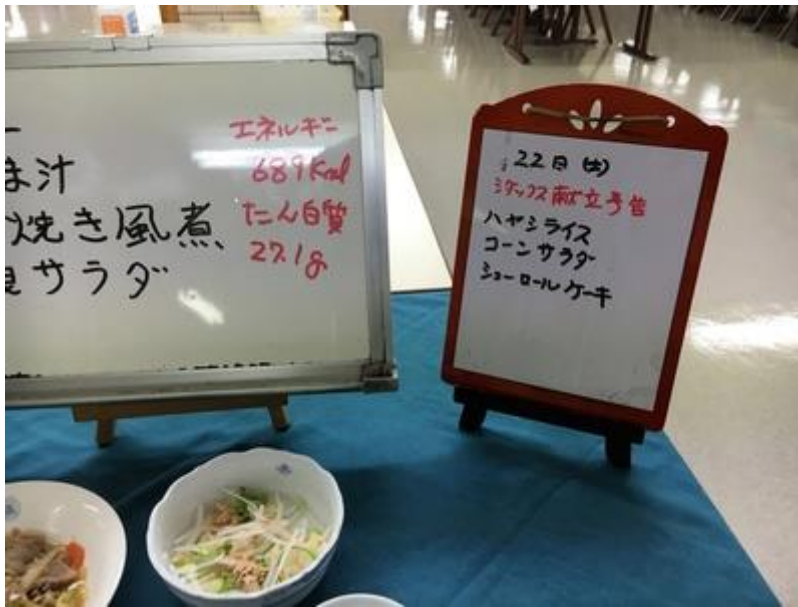 ー
ま汁
焼き風煮
サラダ
エネルギー
689Kcal
たん白質
27.1g
22日(土)
シダックス献立予告
ハヤシライス
コーンサラダ
シューロールケーキ